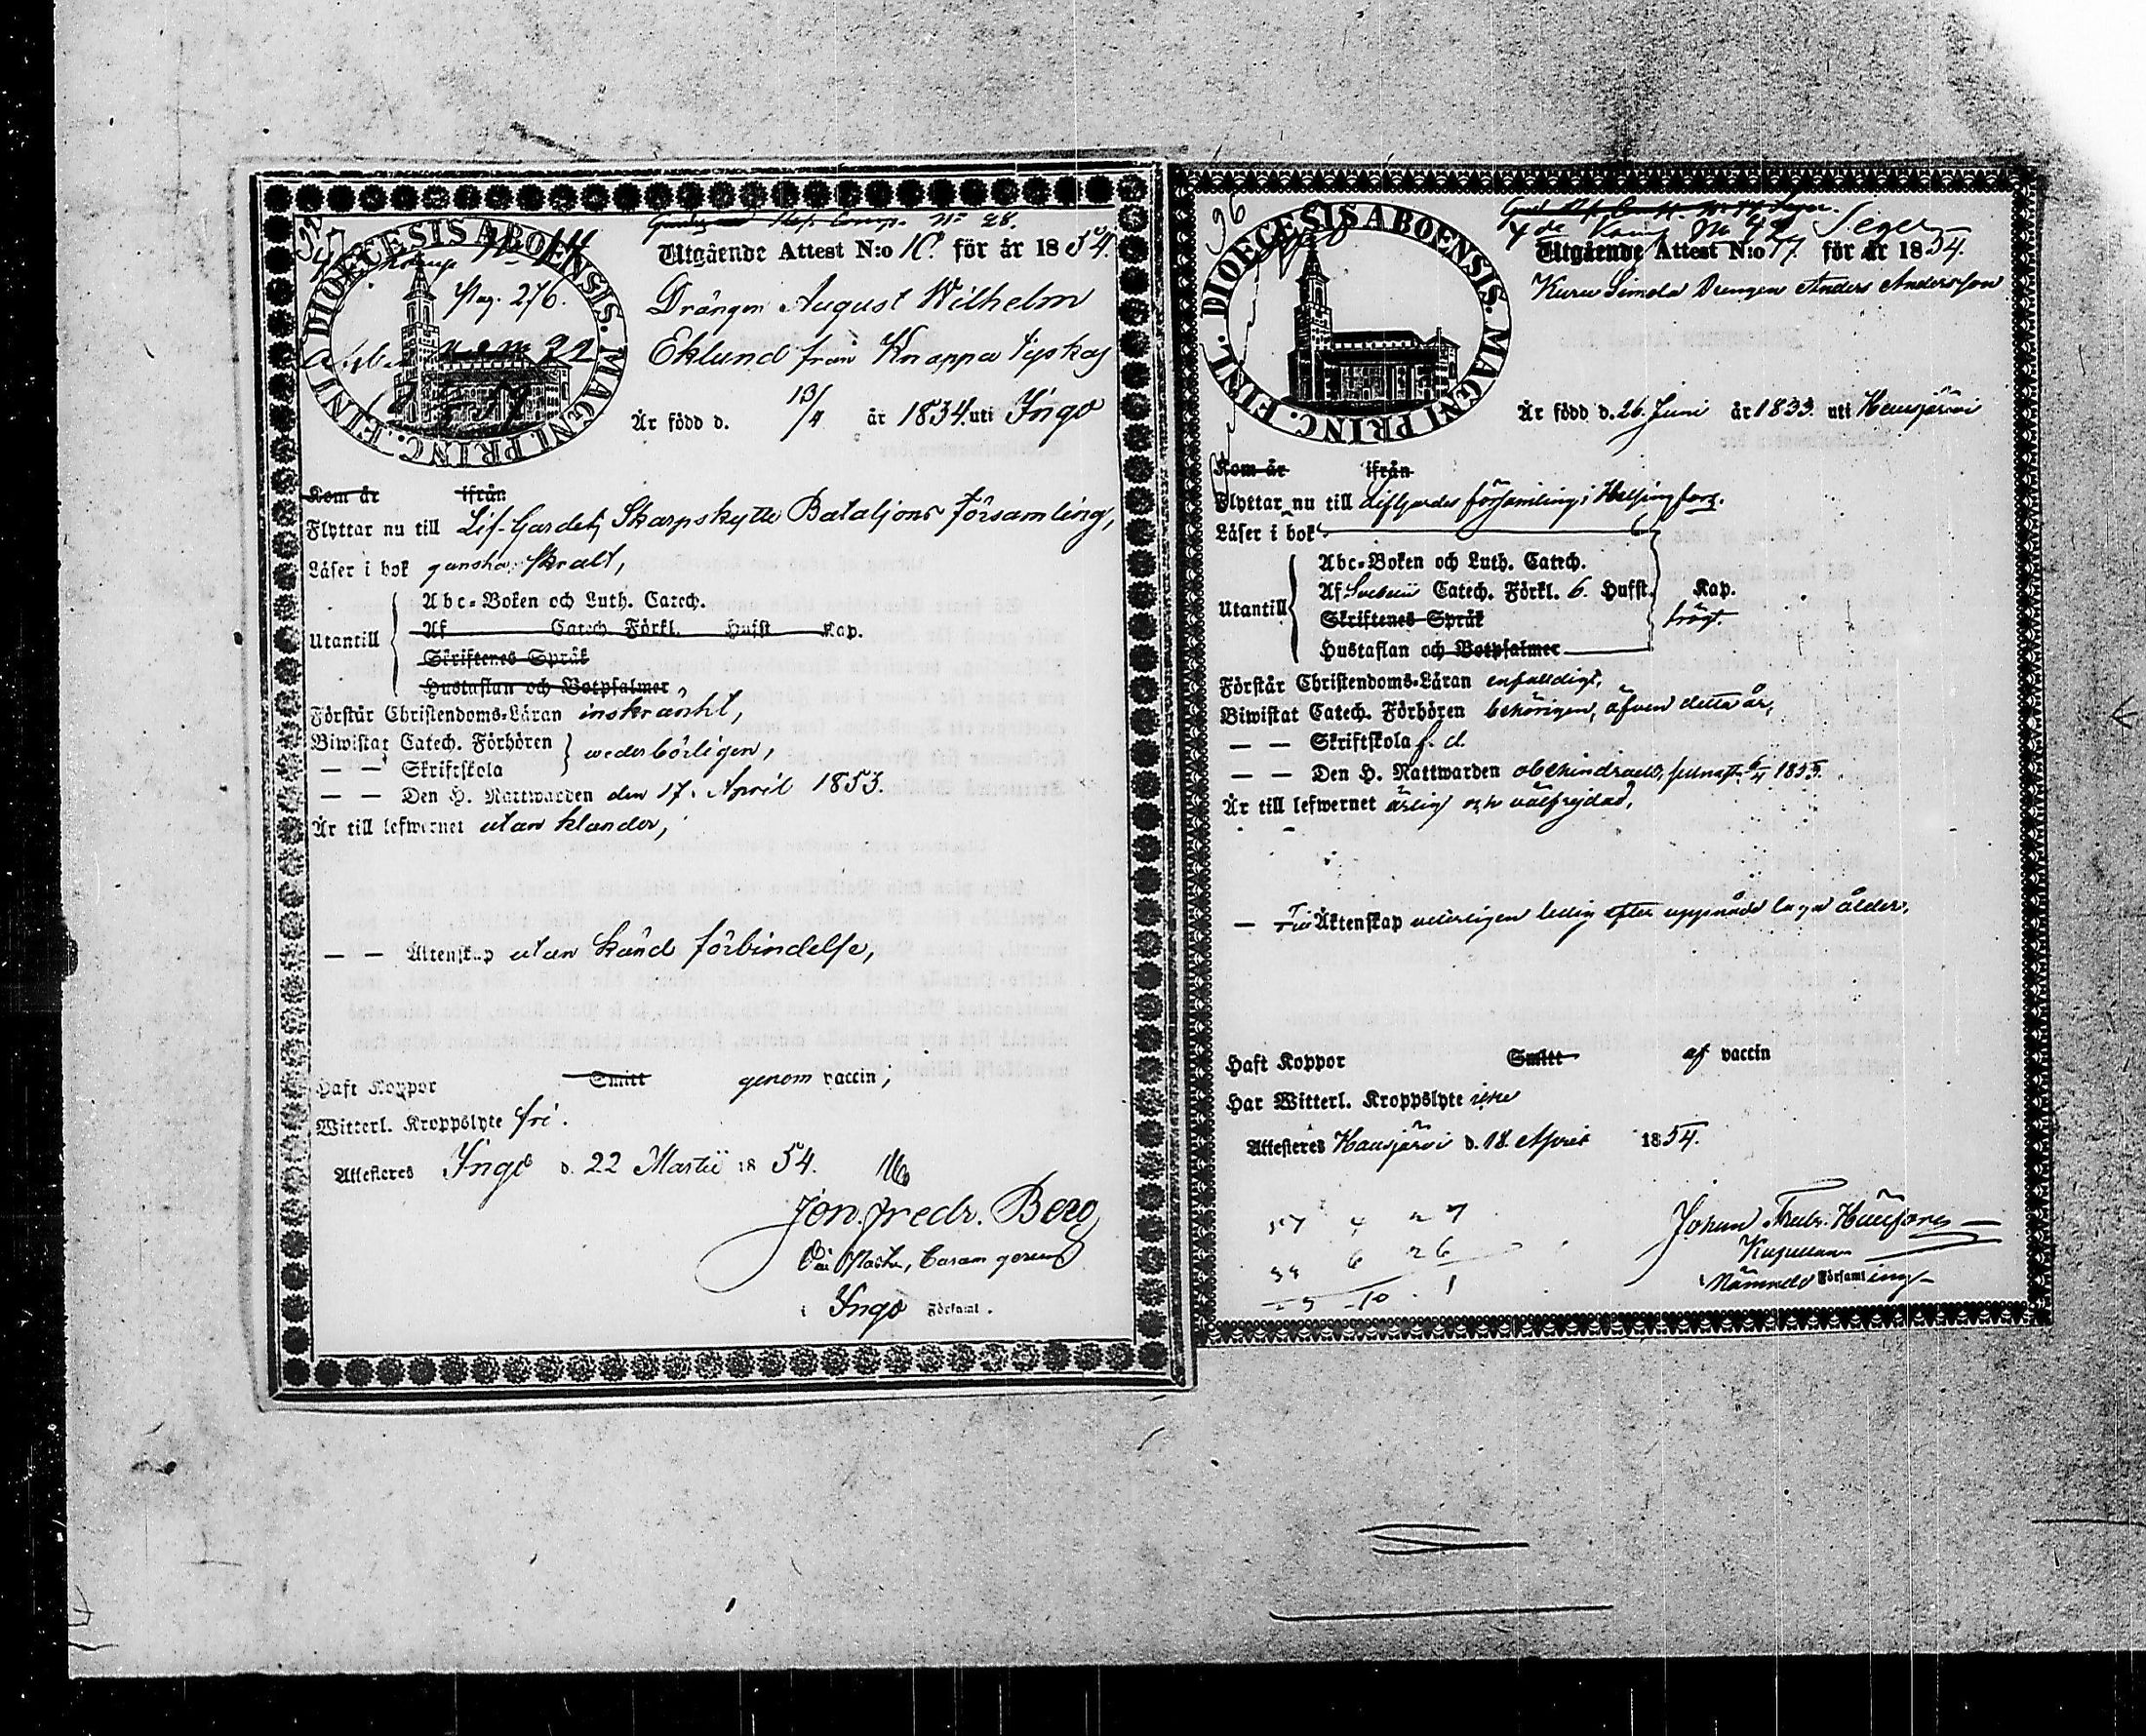 DIOECESIS ABOENSIS. MAGNI PRINC. FINL.
Pag. 276.
Comp. No 28.
Utgående Attest N:o för år 1854.
Drängen August Wilhelm
Eklund från Knappa
Är född d. 13/4 år 1834. uti Ingo
Kom år ifrån
Flyttar nu till Lif-Gardets Skarpskytte Bataljons Församling,
Läser i bok ganska skralt,
Utantill
Abc-Boken och Luth. Catech.
Af Catech. Förkl. Hufst Kap.
Skriftenes Språk
Hustaflan och Botpsalmer
Förstår Christendoms-Läran inskränkt,
Biwistat Catech. Förhören
— — Skriftskola
wederbörligen,
— — Den H. Nattwarden den 17. April 1853.
Är till lefwernet utan klander,
— — Äktenskap utan känd förbindelse,
Haft Koppor Smitt genom vaccin;
Witterl. Kroppslyte fri.
Attesteres Ingo d. 22 Martii 1854.
Jon. Fredr. Berg
i Ingo Församl.
96
DIOECESIS ABOENSIS. MAGNI PRINC. FINL.
4de Komp No 42 Seger
Utgående Attest N:o 17 för år 1854.
Drengen Anders Andersson
Är född d. 26. Juni år 1833. uti Hausjärvi
Kom år ifrån
Flyttar nu till Lifgardes församling i Helsingfors.
Läser i bok
Utantill
Abc-Boken och Luth. Catech.
Af Catech. Förkl. 6. Hufst. Kap.
Skriftenes Språk
trögt.
Hustaflan och Botpsalmer
Förstår Christendoms-Läran enfaldigt,
Biwistat Catech. Förhören behörigen, äfven detta år,
— — Skriftskola f. d.
— — Den H. Nattwarden obehindrad,
Är till lefwernet ärlig och välfrejdad,
— Till Äktenskap ledig efter uppnådd laga ålder.
Haft Koppor Smitt af vaccin
Har Witterl. Kroppslyte icke
Attesteres Hausjärvi d. 18. April 1854.
Johan Fredr.
Kapellan
i Nämnde Församling